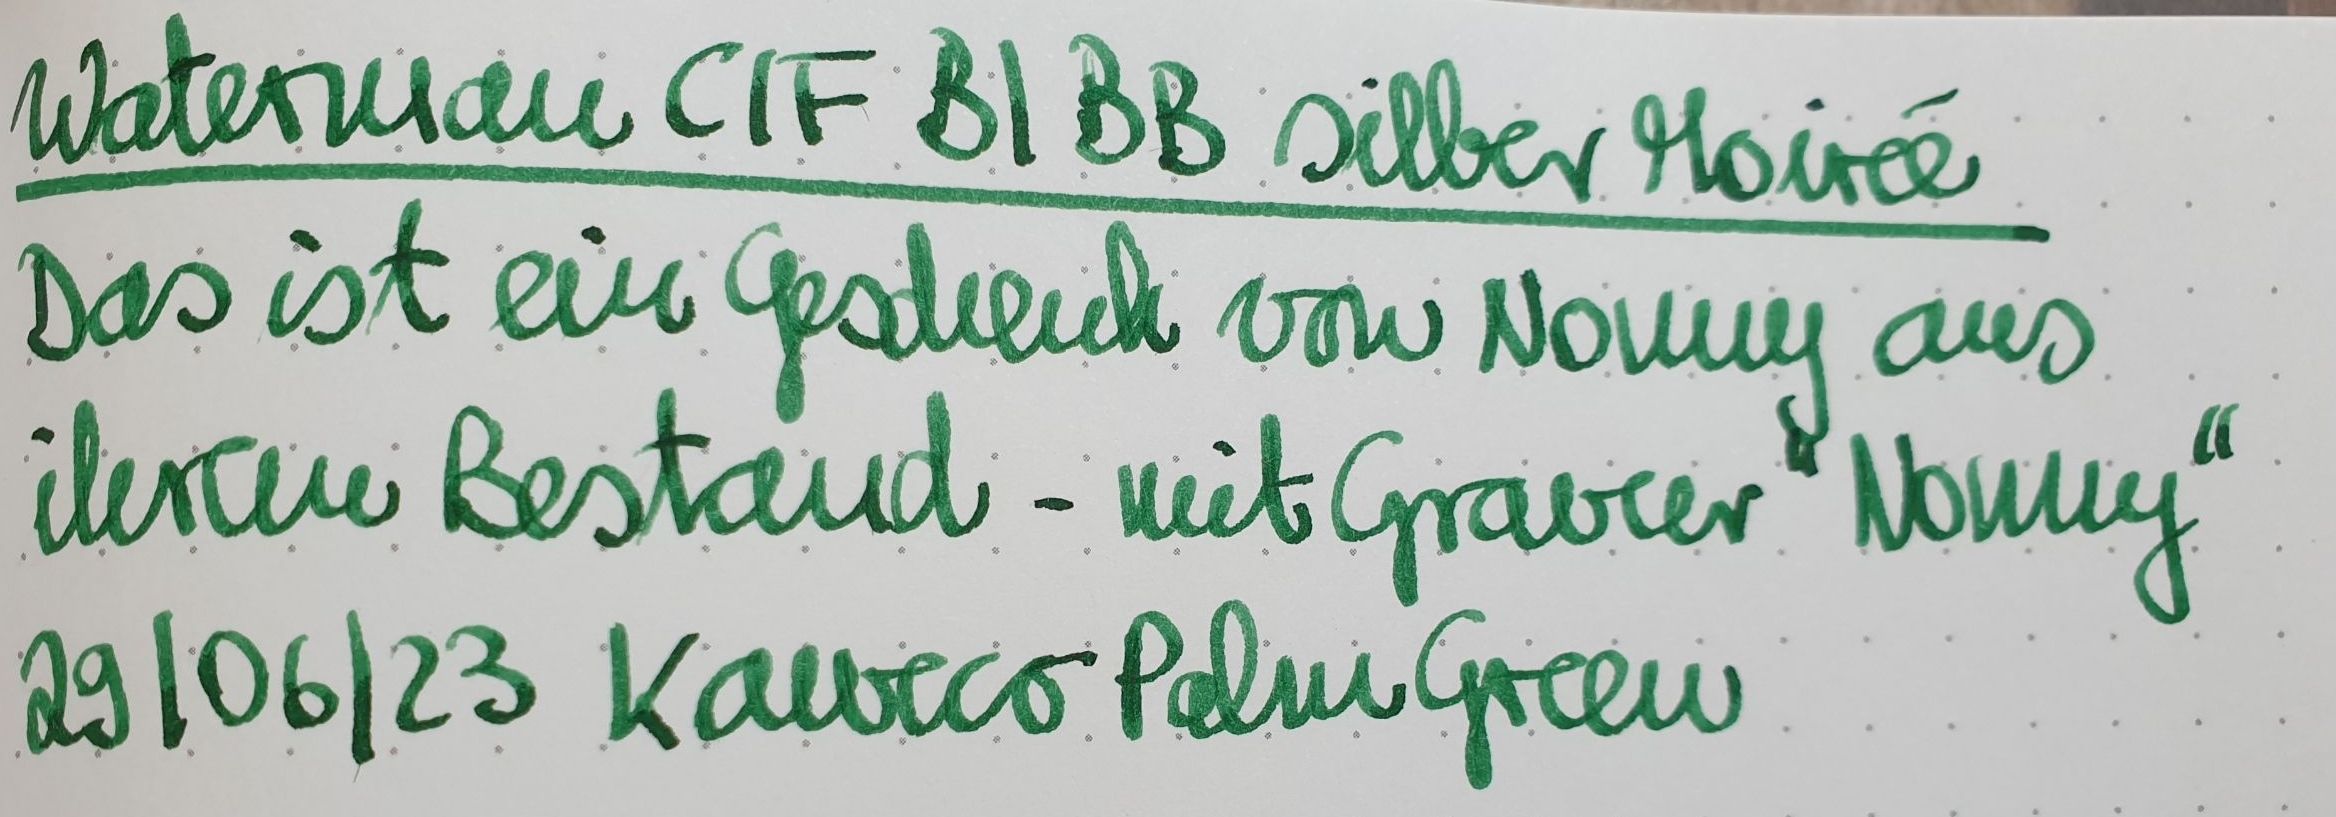 Waterman CIF B/BB silber Moireé
Das ist ein Geschenk von Nonny aus
ihrem Bestand - mit Gravur "Nonny"
29/06/23 Kaweco Palm Green